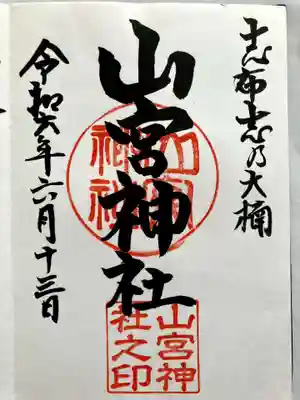 志布志乃大楠
山宮神社
令和六年六月十三日
山宮神
社之印